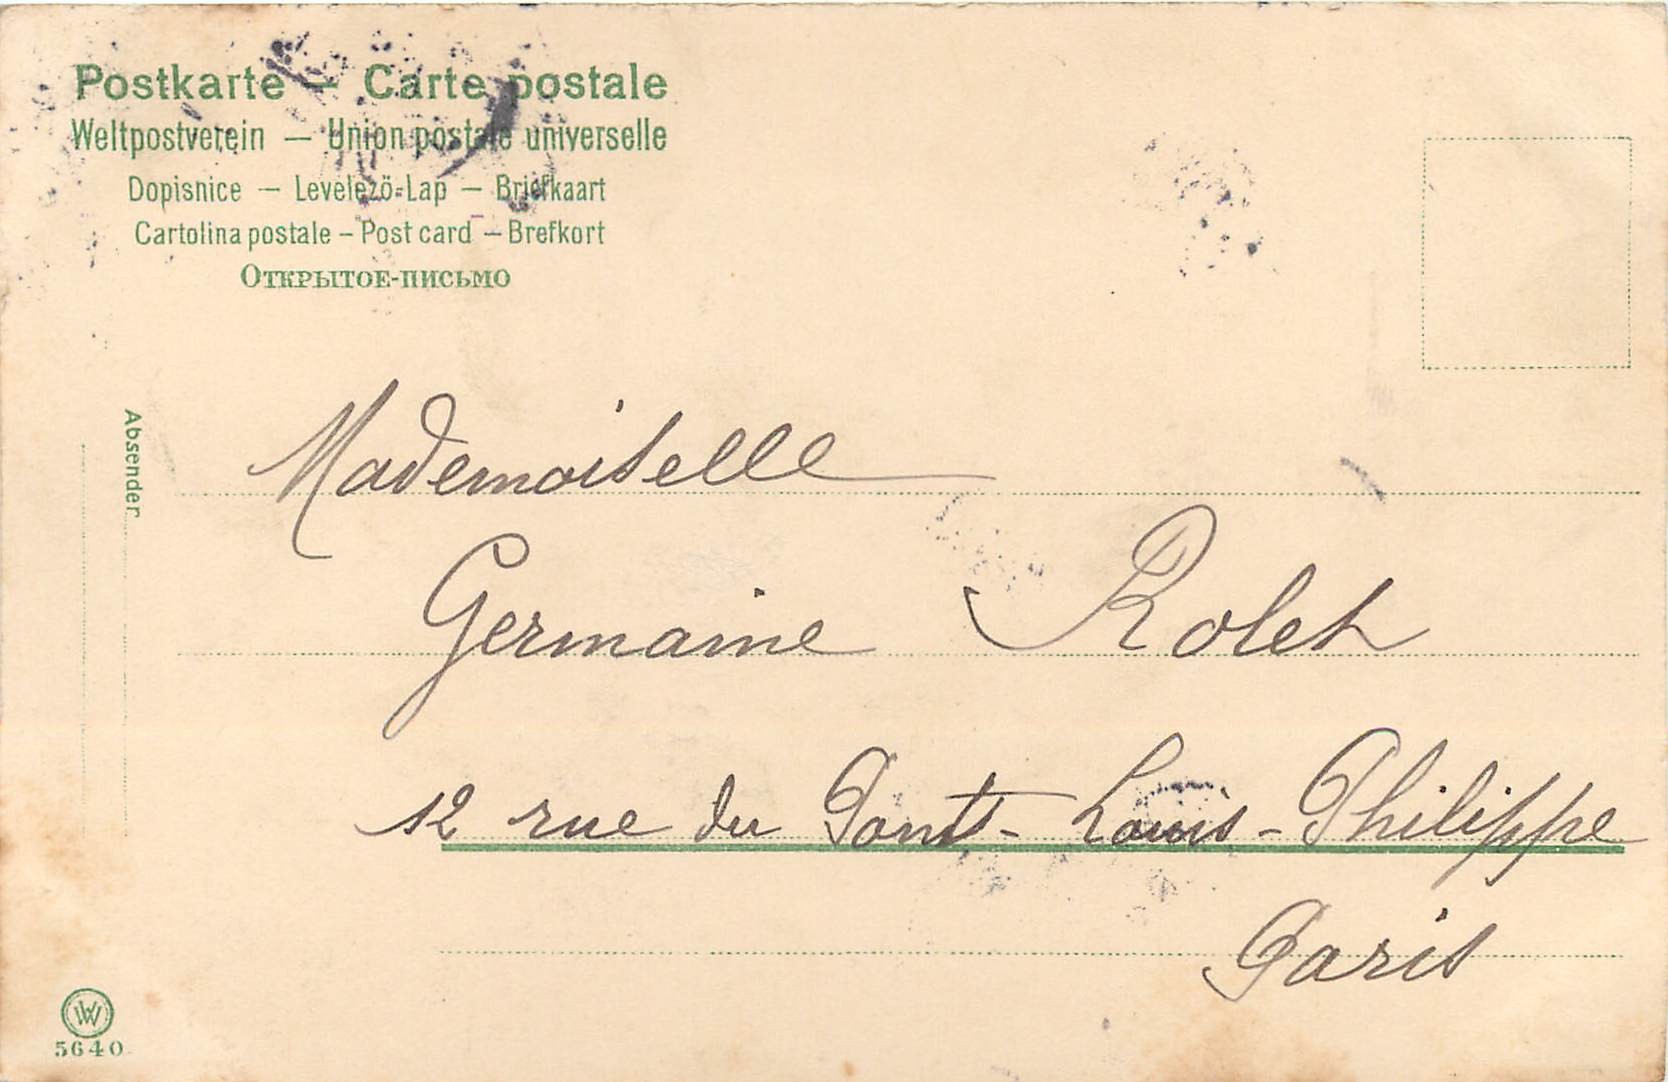 Postkarte — Carte postale
Weltpostverein — Union postale universelle
Dopisnice — Levelező-Lap — Briefkaart
Cartolina postale – Post card – Brefkort
Открытое-письмо
Absender
Mademoiselle
Germaine Rolet
12 rue du Pont-Louis-Philippe
Paris
W
5640